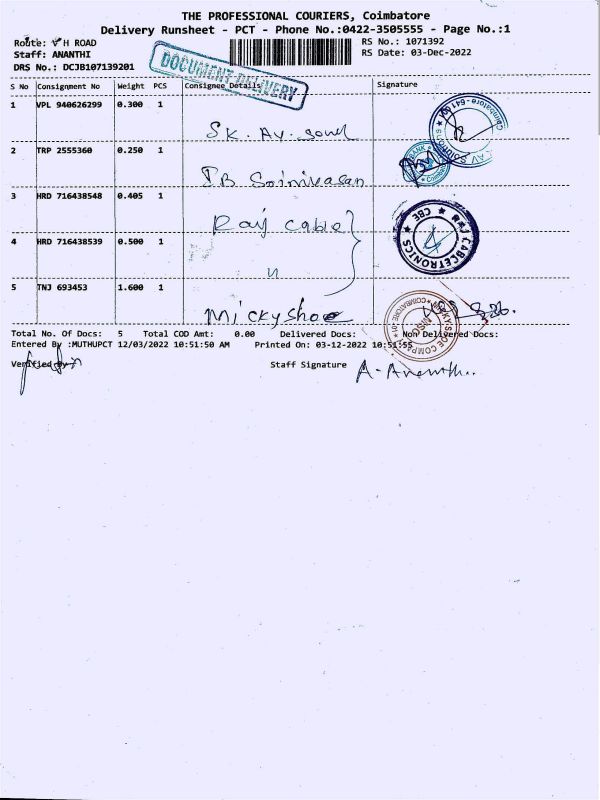 THE PROFESSIONAL COURIERS, Coimbatore
Delivery Runsheet - PCT - Phone No.:0422-3505555 - Page No.:1
Route: V H ROAD
RS No.: 1071392
Staff: ANANTHI
RS Date: 03-Dec-2022
DRS No.: DCJB107139201
DOCUMENT DELIVERY
S No Consignment No Weight PCS Consignee Details Signature
1 VPL 940626299 0.300 1
SK. Av.
2 TRP 2555360 0.250 1
Srinivasan
3 HRD 716438548 0.405 1
Raj Cable
4 HRD 716438539 0.500 1
"
CABCETRONICS ★ CBE ★
5 TNJ 693453 1.600 1
Mickyshoe
Total No. Of Docs: 5 Total COD Amt: 0.00 Delivered Docs: Non Delivered Docs:
Entered By :MUTHUPCT 12/03/2022 10:51:50 AM Printed On: 03-12-2022 10:51:55
Verified by
Staff Signature A. Ananthi